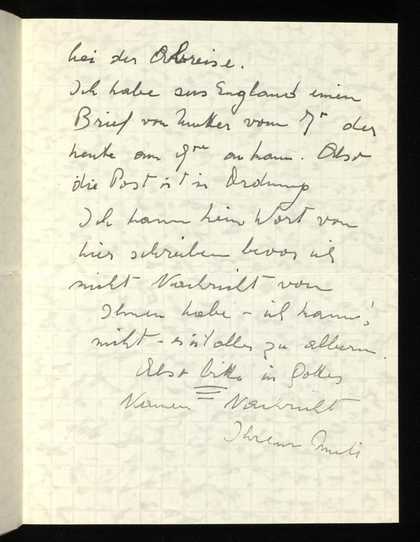 bei der Abreise.
Ich habe aus England einen
Brief von Mutter vom 7ten der
heute am 9ten ankam. Also
die Post ist in Ordnung
Ich kann kein Wort von
hier schreiben bevor ich
nicht Nachricht von
Ihnen habe – ich kann's
nicht – es ist alles zu albern.
Also bitte in Gottes
Namen Nachricht